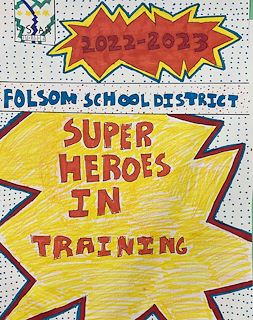 2022-2023
FOLSOM SCHOOL DISTRICT
SUPER
HEROES
IN
TRAINING